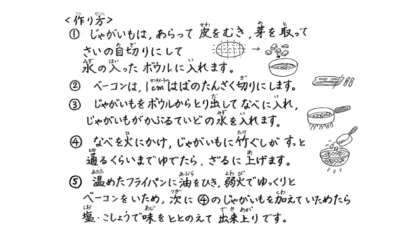 <作り方>
① じゃがいもは、あらって 皮をむき、芽を取って
さいの目切りにして
水の入ったボウルに入れます。
② ベーコンは、1cmはばのたんざく切りにします。
③ じゃがいもをボウルからとり出してなべに入れ、
じゃがいもがかぶるていどの水を入れます。
④ なべを火にかけ、じゃがいもに竹ぐしがすっと
通るくらいまでゆでたら、ざるに上げます。
⑤ 温めたフライパンに油をひき、弱火でゆっくりと
ベーコンをいため、次に④のじゃがいもを加えていためたら
塩・こしょうで味をととのえて出来上りです。